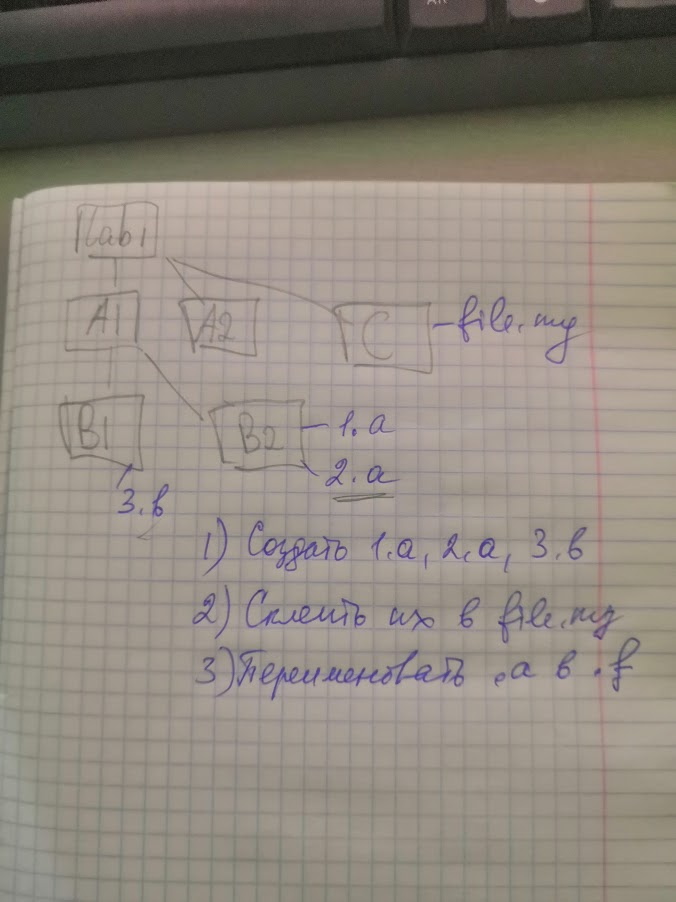 Lab1
A1 A2 C - file.my
B1 B2 - 1.a
2.a
3.в
1) Создать 1.a, 2.a, 3.в
2) Склеить их в file.my
3) Переименовать .a в .f